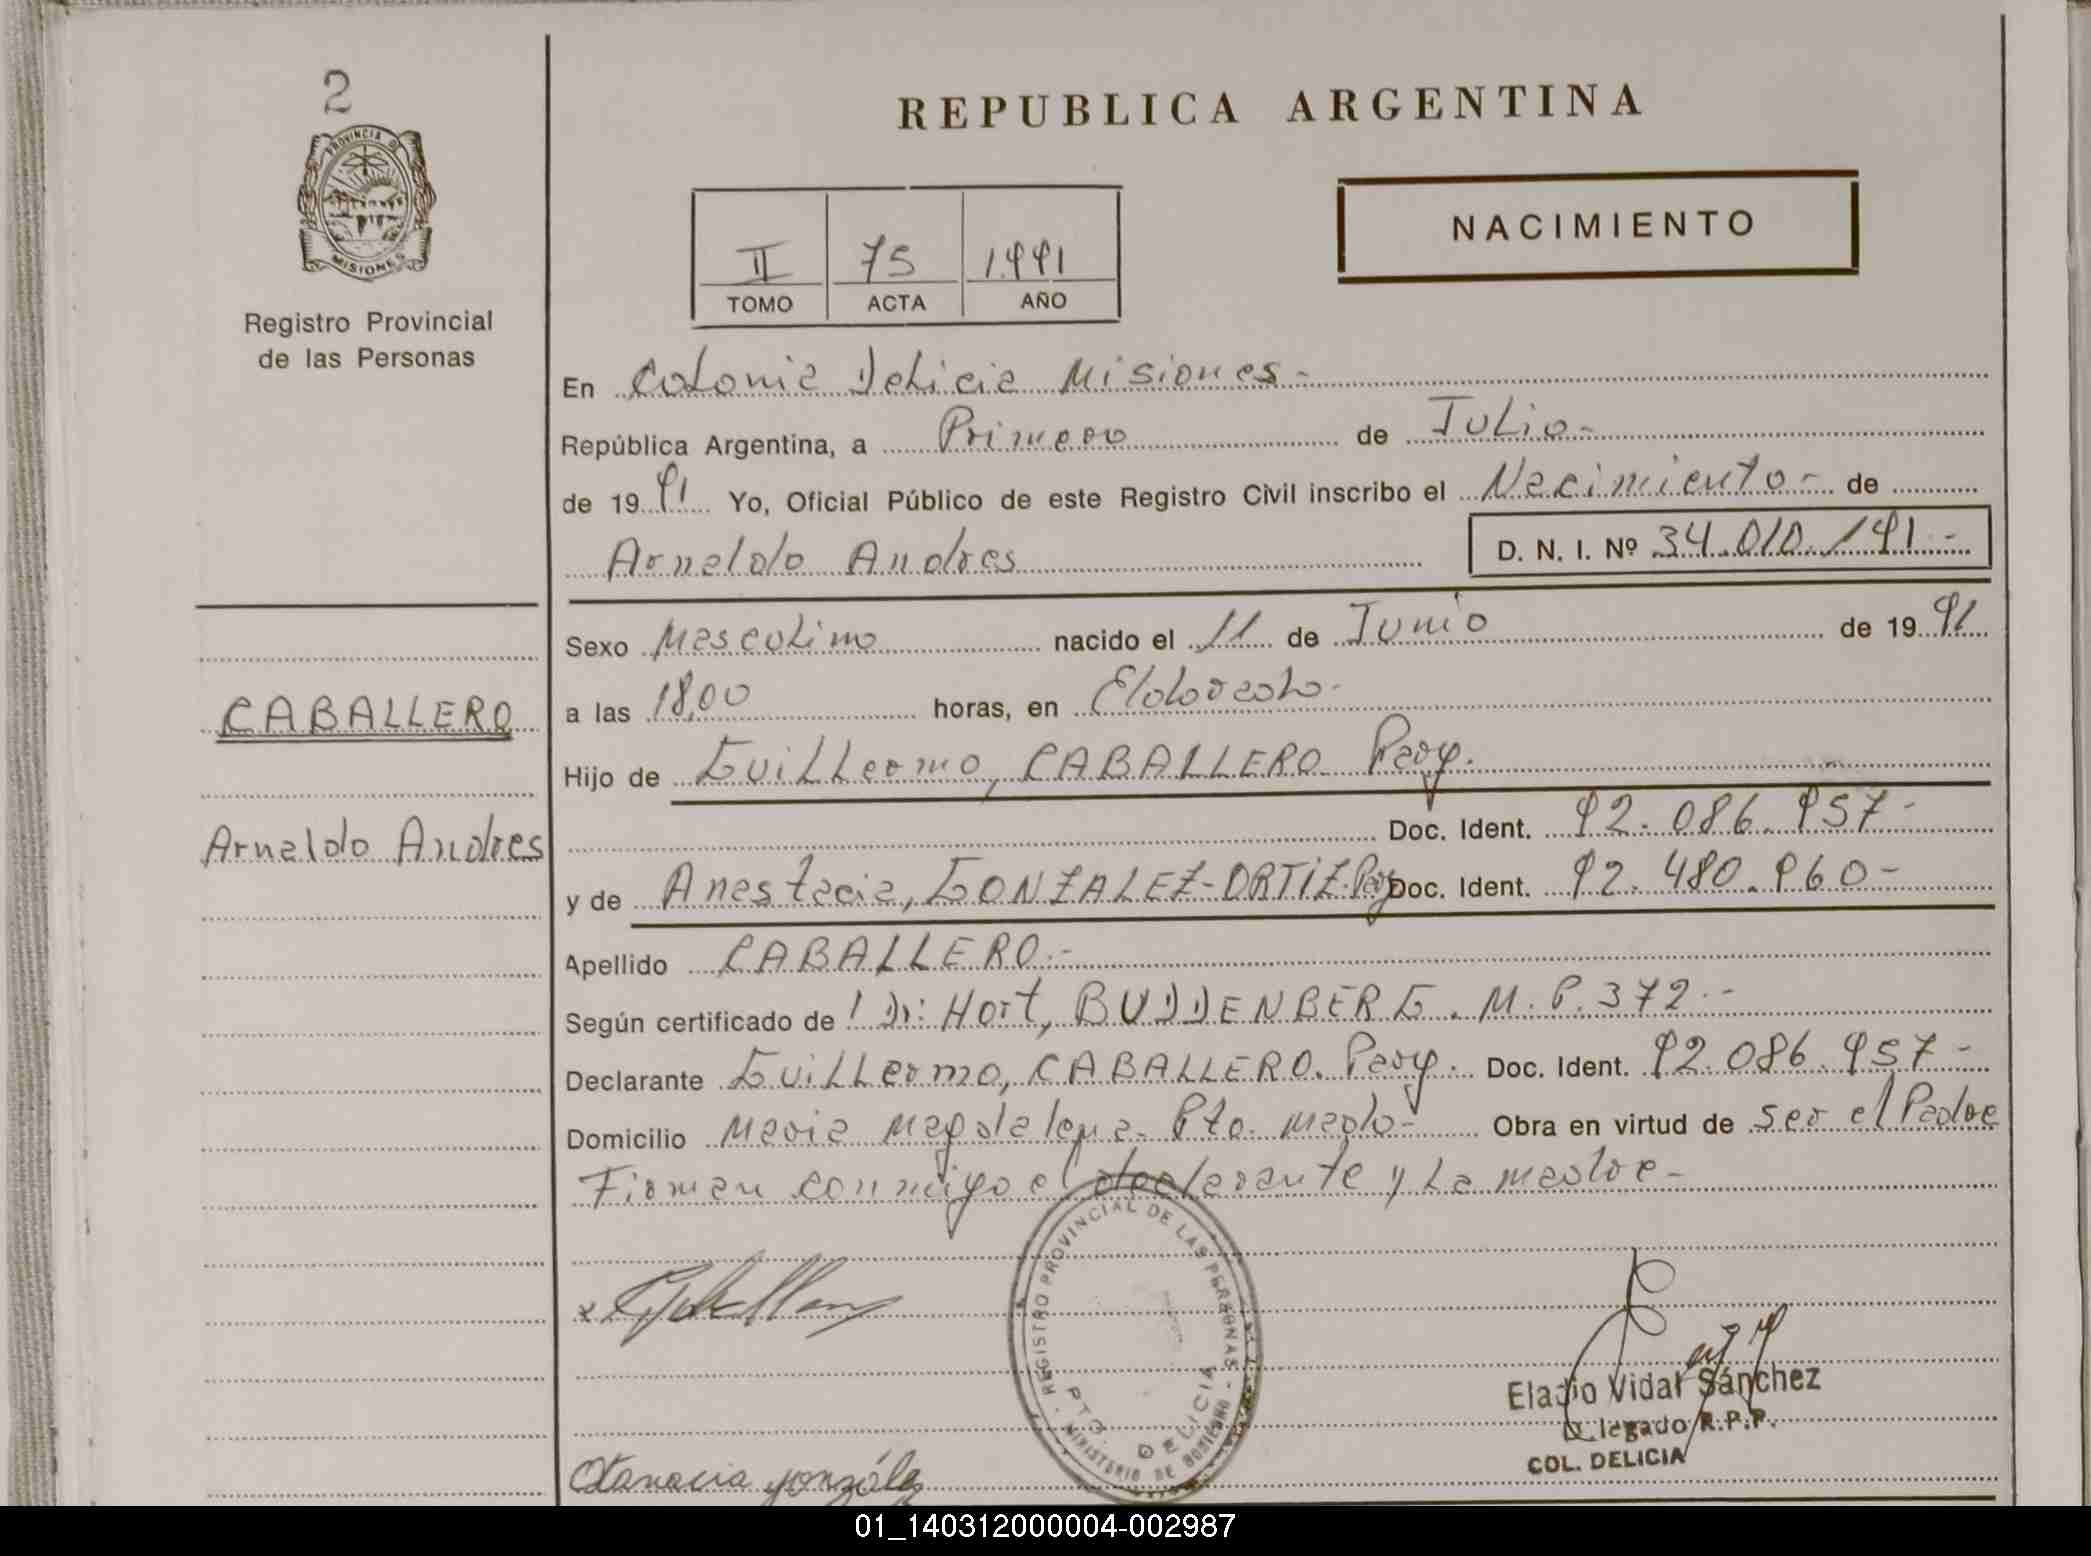 2
PROVINCIA DE
MISIONES
Registro Provincial
de las Personas
CABALLERO
Arnaldo Andres
REPUBLICA ARGENTINA
NACIMIENTO
II 75 1.991
TOMO ACTA AÑO
En Colonia Delicia Misiones -
República Argentina, a Primero de Julio -
de 19 91 Yo, Oficial Público de este Registro Civil inscribo el Nacimiento - de
Arnaldo Andres D. N. I. Nº 34.010.191.-
Sexo Masculino nacido el 11 de Junio de 19 91
a las 18,00 horas, en Eldorado -
Hijo de Guillermo, CABALLERO
Doc. Ident. 92.086.957-
y de Anastacia, GONZALEZ-ORTIZ. Doc. Ident. 92.480.960-
Apellido CABALLERO.-
Según certificado de Dr: Hort, BUDDENBERG. M.P. 372.-
Declarante Guillermo, CABALLERO. Doc. Ident. 92.086.957-
Domicilio Maria Magdalena - Pto. Mado - Obra en virtud de ser el Padre
Firman conmigo el declarante y la madre -
REGISTRO PROVINCIAL DE LAS PERSONAS -
MINISTERIO DE GOBIERNO
PTO DELICIA
Eladio Vidal Sánchez
D legado R.P.P.
COL. DELICIA
gonzález
01_140312000004-002987